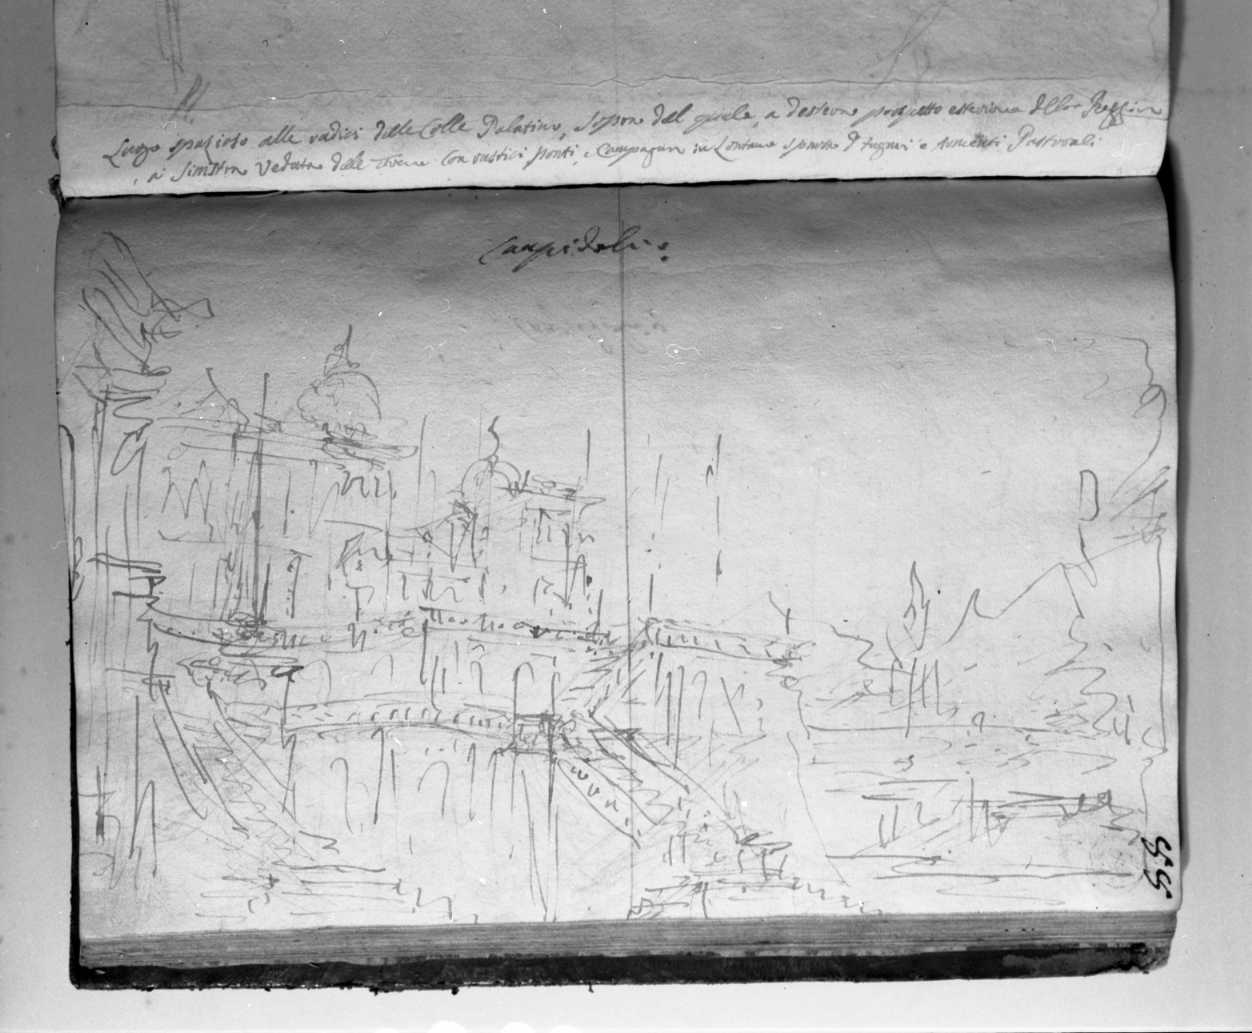 Luogo spazioso alle radici delle Colle Palatino, sopra del quale, a destra prospetto esteriore della Reggia
a sinistra Veduta delle Tevere con rustici ponti e Campagna in Lontano sparsa di tuguri e Pastorali
Campidolio
55